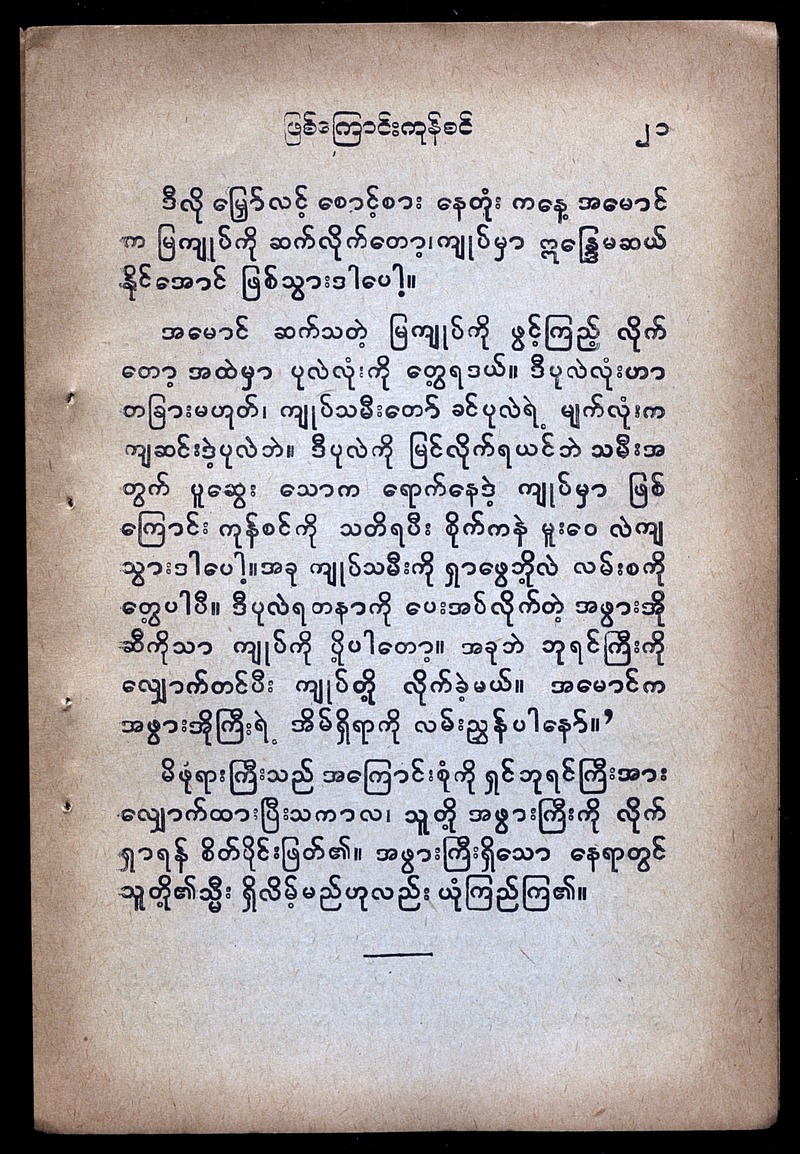 ဖြစ်ကြောင်းကုန်စင် ၂၁
ဒီလို မြှော်လင့် စောင့်စား နေတုံး ကနေ့ အမောင်
က မြကျုပ်ကို ဆက်လိုက်တော့၊ကျုပ်မှာ ဣန္ဒြေမဆယ်
နိုင်အောင် ဖြစ်သွားဒါပေါ့။
အမောင် ဆက်သတဲ့ မြကျုပ်ကို ဖွင့်ကြည့် လိုက်
တော့ အထဲမှာ ပုလဲလုံးကို တွေ့ရဒယ်။ ဒီပုလဲလုံးဟာ
တခြားမဟုတ်၊ ကျုပ်သမီးတော် ခင်ပုလဲရဲ့ မျက်လုံးက
ကျဆင်းဒဲ့ပုလဲဘဲ။ ဒီပုလဲကို မြင်လိုက်ရယင်ဘဲ သမီးအ
တွက် ပူဆွေး သောက ရောက်နေဒဲ့ ကျုပ်မှာ ဖြစ်
ကြောင်း ကုန်စင်ကို သတိရပီး စိုက်ကနဲ မူးဝေ လဲကျ
သွားဒါပေါ့။အခု ကျုပ်သမီးကို ရှာဖွေဘို့လဲ လမ်းစကို
တွေ့ပါပီ။ ဒီပုလဲရတနာကို ပေးအပ်လိုက်တဲ့ အဖွားအို
ဆီကိုသာ ကျုပ်ကို ပို့ပါတော့။ အခုဘဲ ဘုရင်ကြီးကို
လျှောက်တင်ပီး ကျုပ်တို့ လိုက်ခဲ့မယ်။ အမောင်က
အဖွားအိုကြီးရဲ့ အိမ်ရှိရာကို လမ်းညွှန်ပါနော်။’
မိဖုံရားကြီးသည် အကြောင်းစုံကို ရှင်ဘုရင်ကြီးအား
လျှောက်ထားပြီးသကာလ၊ သူတို့ အဖွားကြီးကို လိုက်
ရှာရန် စိတ်ပိုင်းဖြတ်၏။ အဖွားကြီးရှိသော နေရာတွင်
သူတို့၏သ္မီး ရှိလိမ့်မည်ဟုလည်း ယုံကြည်ကြ၏။